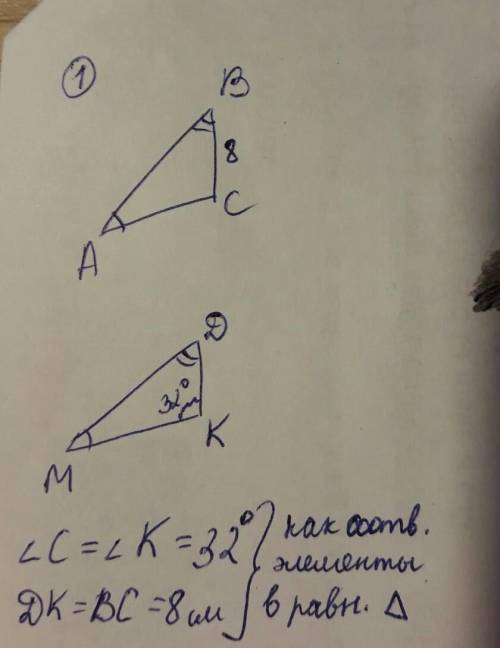 1
B
8
C
A
Д
32°
K
M
∠C = ∠K = 32° } как соотв.
элементы
ДK = BC = 8 см } в равн. Δ